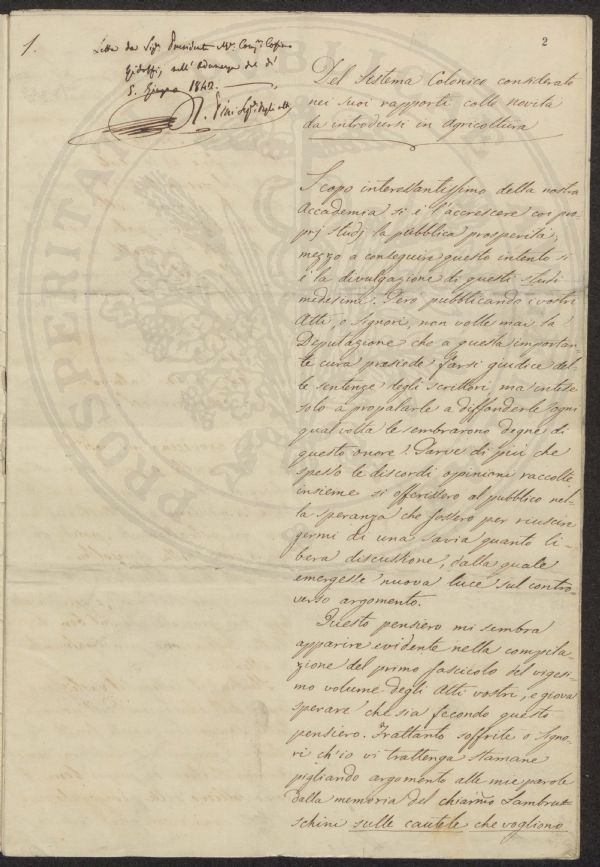 1.
2
Letta dal Sigr. Presidente Mse. Comm. Cosimo
Ridolfi, nell'Adunanza del dì
5. Giugno 1842.
Del Sistema Colonico considerato
nei suoi rapporti colle novità
da introdursi in Agricoltura
Scopo interessantissimo della nostra
Accademia si è l'accrescere coi pro-
prj studj la pubblica prosperità;
mezzo a conseguire questo intento si
è la divulgazione di questi studi
medesimi. Però pubblicando i vostri
Atti, o Signori, non volle mai la
Deputazione che a questa importan-
te cura presiede farsi giudice del-
le sentenze degli scrittori, ma intese
solo a propalarle a diffonderle ogni
qual volta le sembrarono degne di
questo onore. Parve di più che
spesso le discordi opinioni raccolte
insieme si offerissero al pubblico nel-
la speranza che fossero per riuscire
germi di una savia quanto li-
bera discussione, dalla quale
emergesse nuova luce sul contro-
verso argomento.
Questo pensiero mi sembra
apparire evidente nella compila-
zione del primo fascicolo del vigesi-
mo volume degli Atti vostri, e giova
sperare che sia fecondo questo
pensiero. Frattanto soffrite o Signo-
ri ch'io vi trattenga stamane
pigliando argomento alle mie parole
dalla memoria del chiarmo Lambru-
schini sulle cautele che vogliono
PROSPERITATI
PUBLICAE